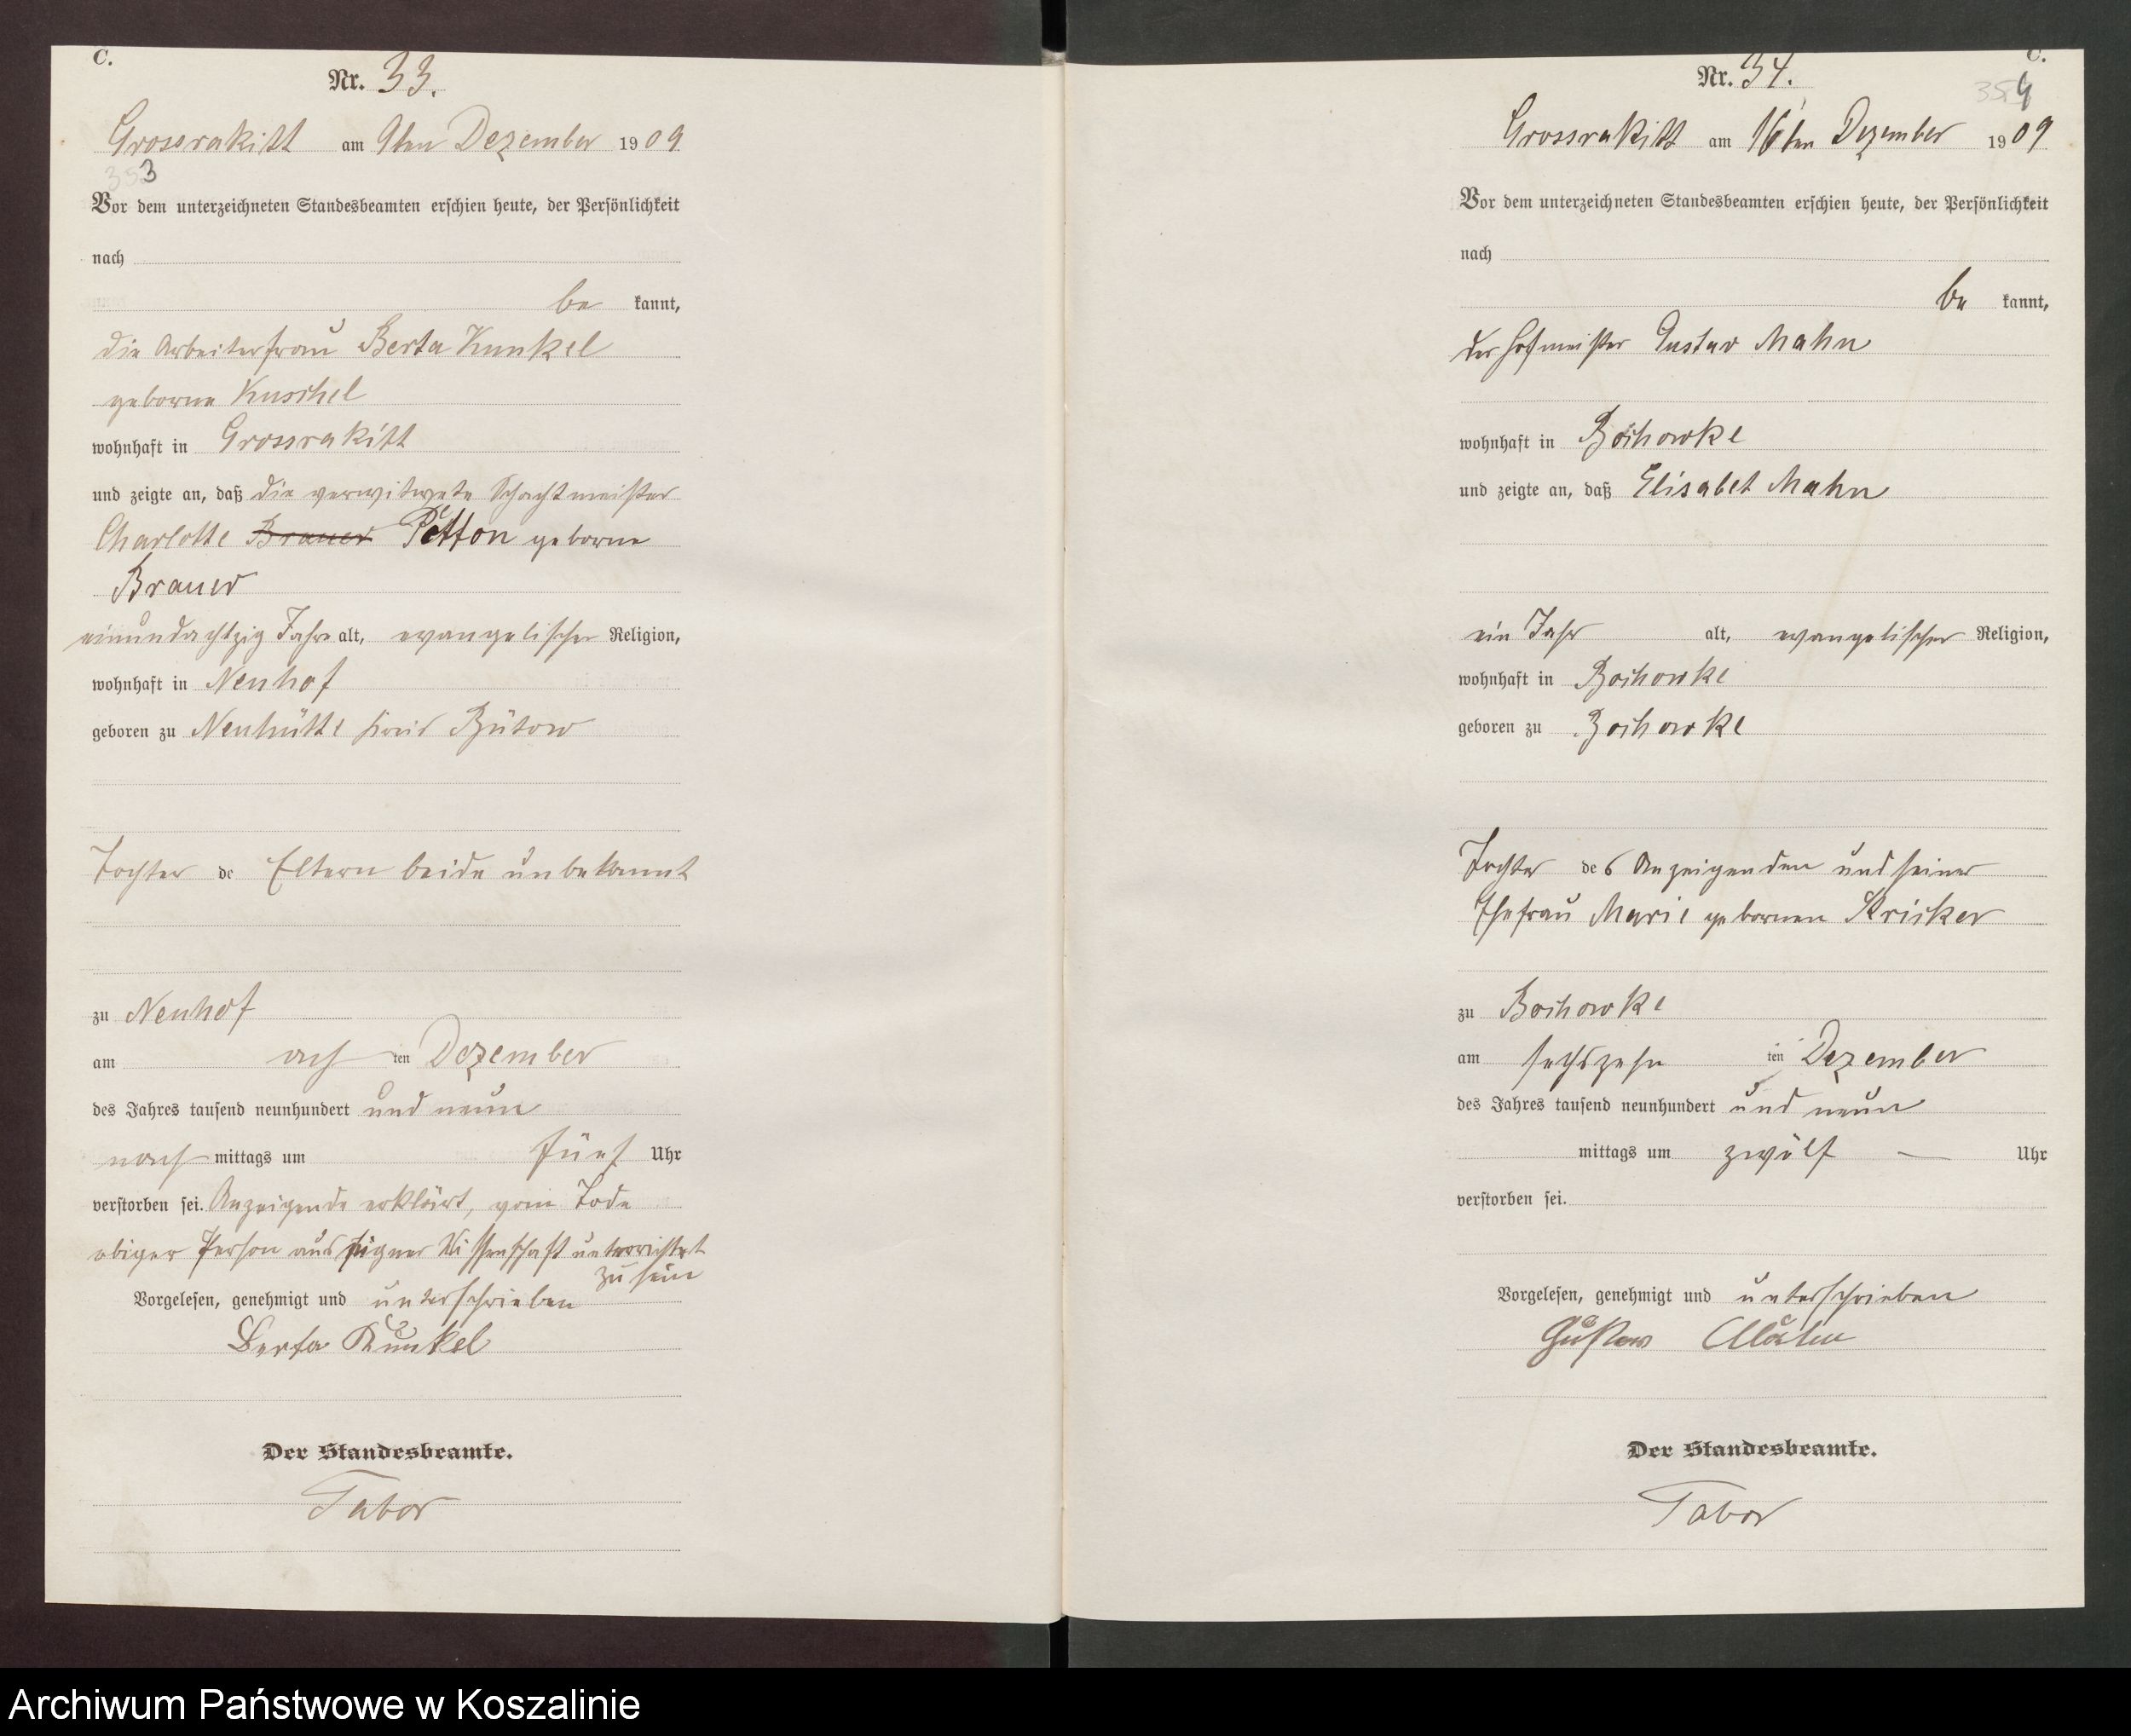 C.
Nr. 33.
Grossrakitt am 9ten Dezember 1909
353
Vor dem unterzeichneten Standesbeamten erschien heute, der Persönlichkeit
nach
be kannt,
die Arbeiterfrau Berta Kunkel
geborne Kuschel
wohnhaft in Grossrakitt
und zeigte an, daß die verwitwete Schachtmeister
Charlotte Brauer Petton geborne
Brauer
einundachtzig Jahre alt, evangelischer Religion,
wohnhaft in Neuhof
geboren zu Neuhütte Kreis Bütow
Tochter de Eltern beide unbekannt
zu Neuhof
am ach ten Dezember
des Jahres tausend neunhundert und neun
nach mittags um fünf Uhr
verstorben sei. Anzeigende erklärt, vom Tode
obiger Person aus eigner Wissenschaft unterrichtet
zu sein
Vorgelesen, genehmigt und unterschrieben
Berta Kunkel
Der Standesbeamte.
Tabor
C.
Nr. 34.
354
Grossrakitt am 16ten Dezember 1909
Vor dem unterzeichneten Standesbeamten erschien heute, der Persönlichkeit
nach
be kannt,
der Hofmeister Gustav Mahn
wohnhaft in Bochowke
und zeigte an, daß Elisabet Mahn
ein Jahr alt, evangelischer Religion,
wohnhaft in Bochowke
geboren zu Bochowke
Tochter des Anzeigenden und seiner
Ehefrau Marie gebornen Kricker
zu Bochowke
am sechszehn ten Dezember
des Jahres tausend neunhundert und neun
mittags um zwölf Uhr
verstorben sei.
Vorgelesen, genehmigt und unterschrieben
Gustav Mahn
Der Standesbeamte.
Tabor
Archiwum Państwowe w Koszalinie